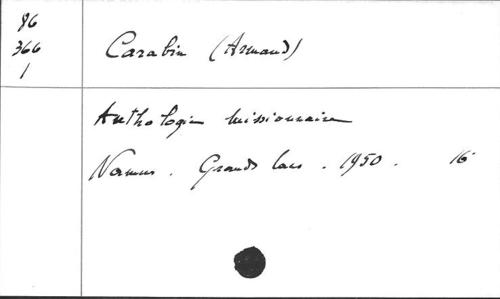 86
366
1
Carabin (Armand)
Anthologie missionnaire
Namur. Grands lacs. 1950. 16